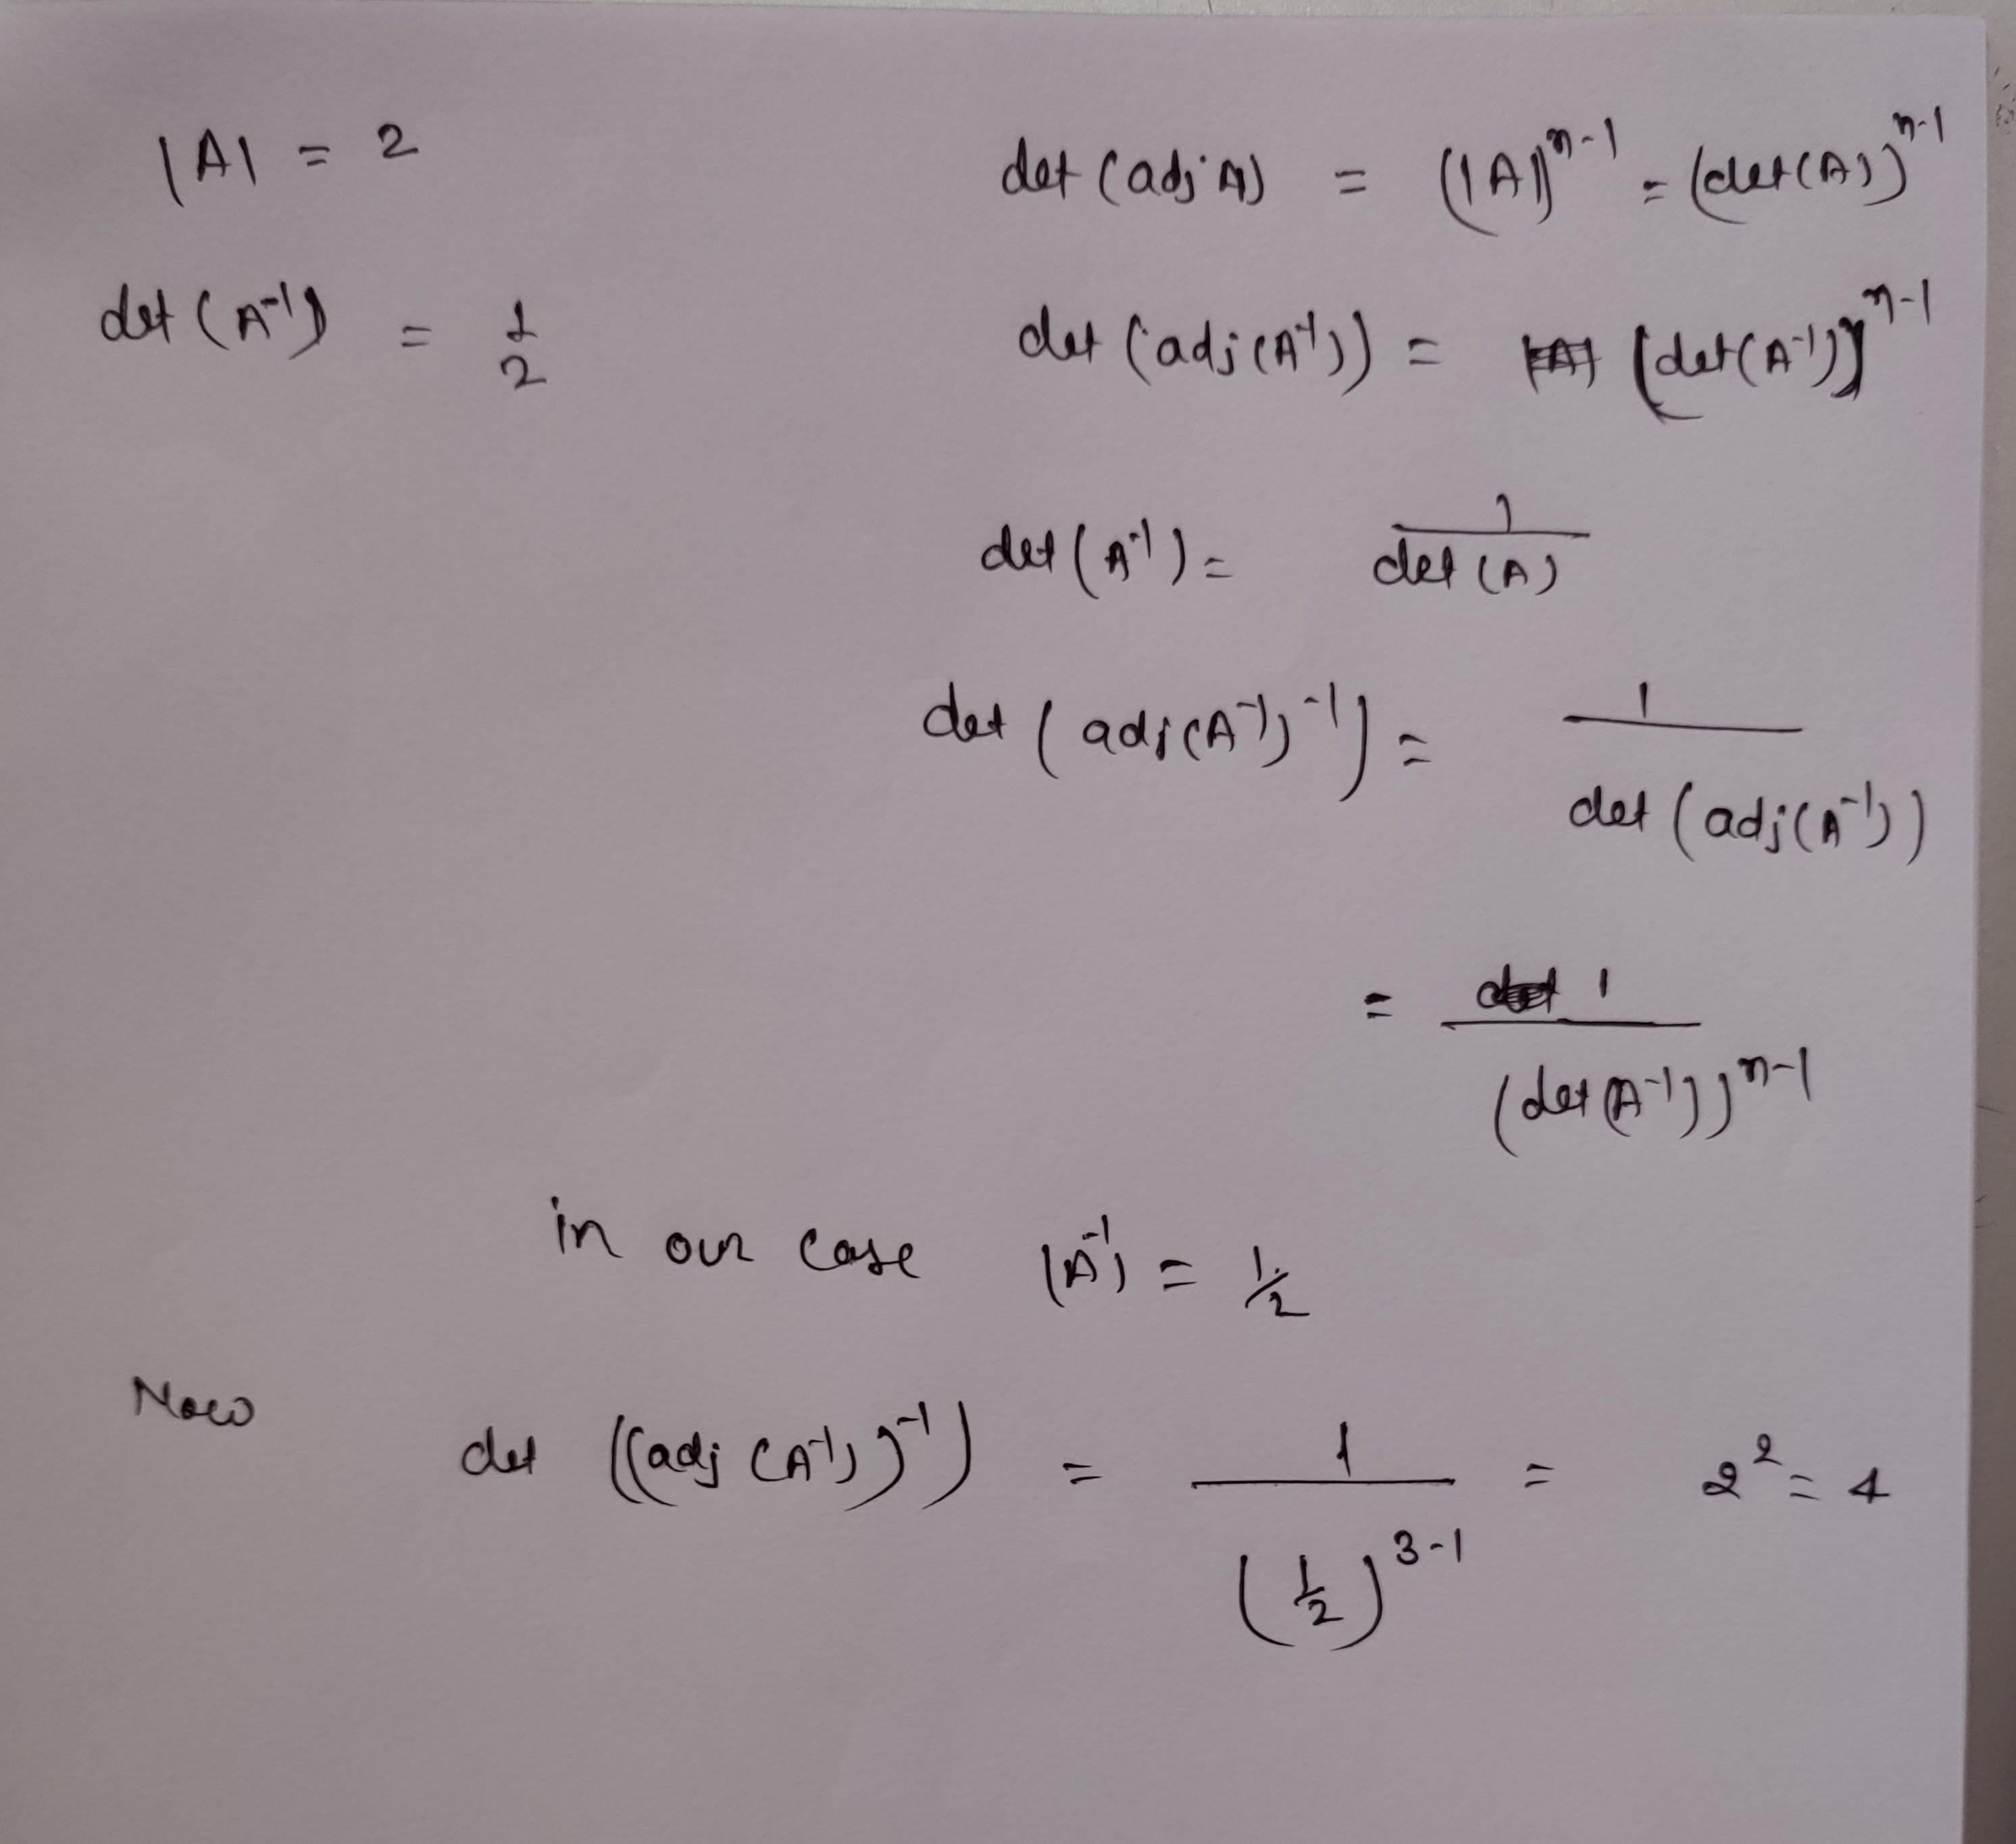 |A| = 2
det (adj A) = (|A|)^{n-1} = (det(A))^{n-1}
det (A^{-1}) = 1/2
det (adj(A^{-1})) = (det(A^{-1}))^{n-1}
det (A^{-1}) = 1/det (A)
det (adj(A^{-1})^{-1}) = 1/det (adj(A^{-1}))
= 1/(det(A^{-1}))^{n-1}
in our case |A^{-1}| = 1/2
Now
det ((adj (A^{-1}))^{-1}) = 1/(1/2)^{3-1} = 2^2 = 4